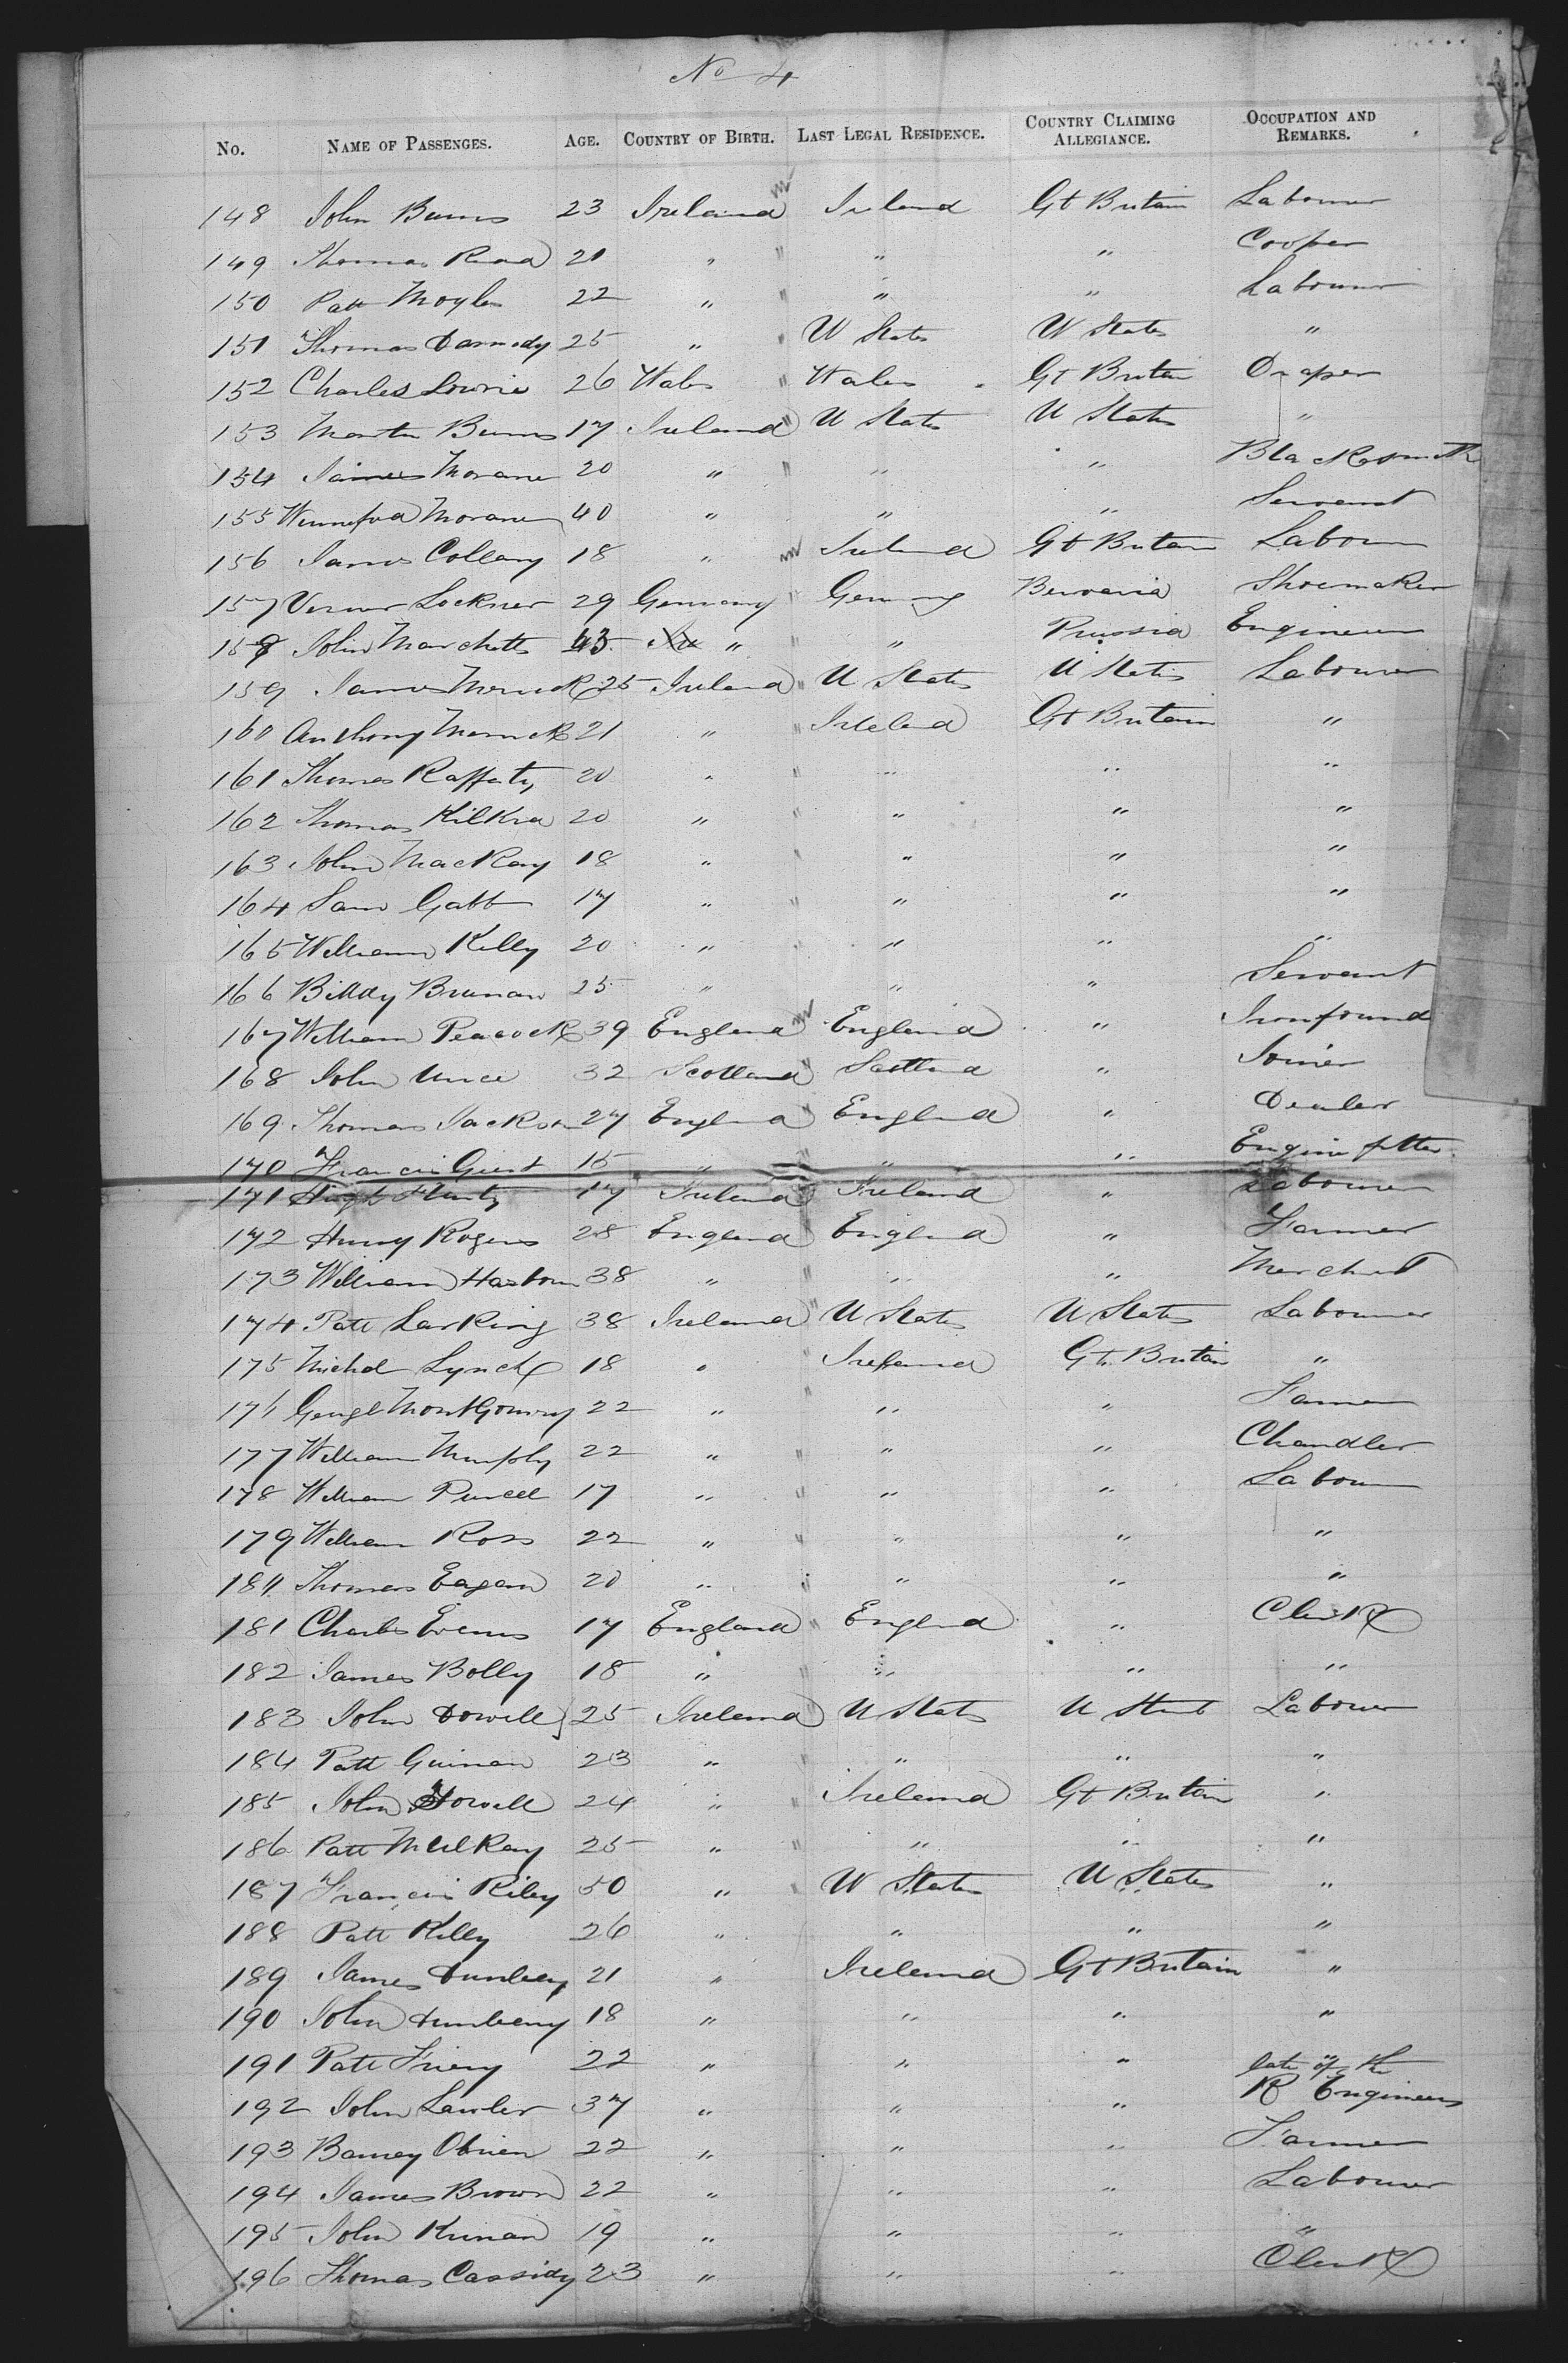 No 4
No. NAME OF PASSENGES. AGE. COUNTRY OF BIRTH. LAST LEGAL RESIDENCE. COUNTRY CLAIMING ALLEGIANCE. OCCUPATION AND REMARKS.
148 John Burns 23 Ireland Ireland Gt Britain Labourer
149 Thomas 20 " " " " Cooper
150 Patt Moyles 22 " " " " Labourer
151 Thomas Darmody 25 " " U States U States "
152 Charles Lowrie 26 Wales " Wales Gt Britain Draper
153 Martin Burns 17 Ireland " U States U States "
154 James Morane 20 " " " " Blacksmith
155 Morane 40 " " " Servant
156 James Collany 18 " Ireland Gt Britain Labourer
157 Verner Lockner 29 Germany " Germany Bervaria Shoemaker
158 John Marchetts 43 " " Prussia Engineer
159 James Merrick 25 Ireland " U States U States Labourer
160 Anthony Merrick 21 " " Ireland Gt Britain "
161 Thomas Rafferty 20 " " " " "
162 Thomas Kilkra 20 " " " " "
163 John MacKay 18 " " " " "
164 Sam Gabb 17 " " " " "
165 William Killy 20 " " " " "
166 Biddy Brunan 25 " " " Servant
167 William Peacock 39 England England " Ironfound
168 John 32 Scotland " Scotland " Joiner
169 Thomas Jackson 27 England " England " Dealer
170 Francis Guest 15 " " " Engine fitter
171 Hugh 17 Ireland Ireland " Labourer
172 Henry Rogers 28 England England " Farmer
173 William 38 " " " Merchant
174 Patt Larking 38 Ireland " U States U States Labourer
175 Michel Lynch 18 " Ireland Gt. Britain "
176 George Montgomry 22 " " " " Farmer
177 William Murphy 22 " " " " Chandler
178 William Purcell 17 " " " " Labour
179 William Ross 22 " " " " "
180 Thomas Eagan 20 " " " " "
181 Charles Evens 17 England " England " Clerk
182 James Bolly 18 " " " " "
183 John Dowell 25 Ireland " U States U States Labourer
184 Patt Guinan 23 " " " " "
185 John Dowell 24 " " Ireland Gt Britain "
186 Patt MulKay 25 " " " " "
187 Francis Riley 50 " " U States U States "
188 Patt Killy 26 " " " "
189 James Dunbeny 21 " Ireland Gt Britain "
190 John Dunbeny 18 " " " "
191 Patt Friery 22 " " " "
192 John Lawler 37 " " " late of the R Engineers
193 Barney Obrien 22 " " " Farmer
194 James Brown 22 " " " Labourer
195 John Kinan 19 " " " "
196 Thomas Cassidy 23 " " " Clerk